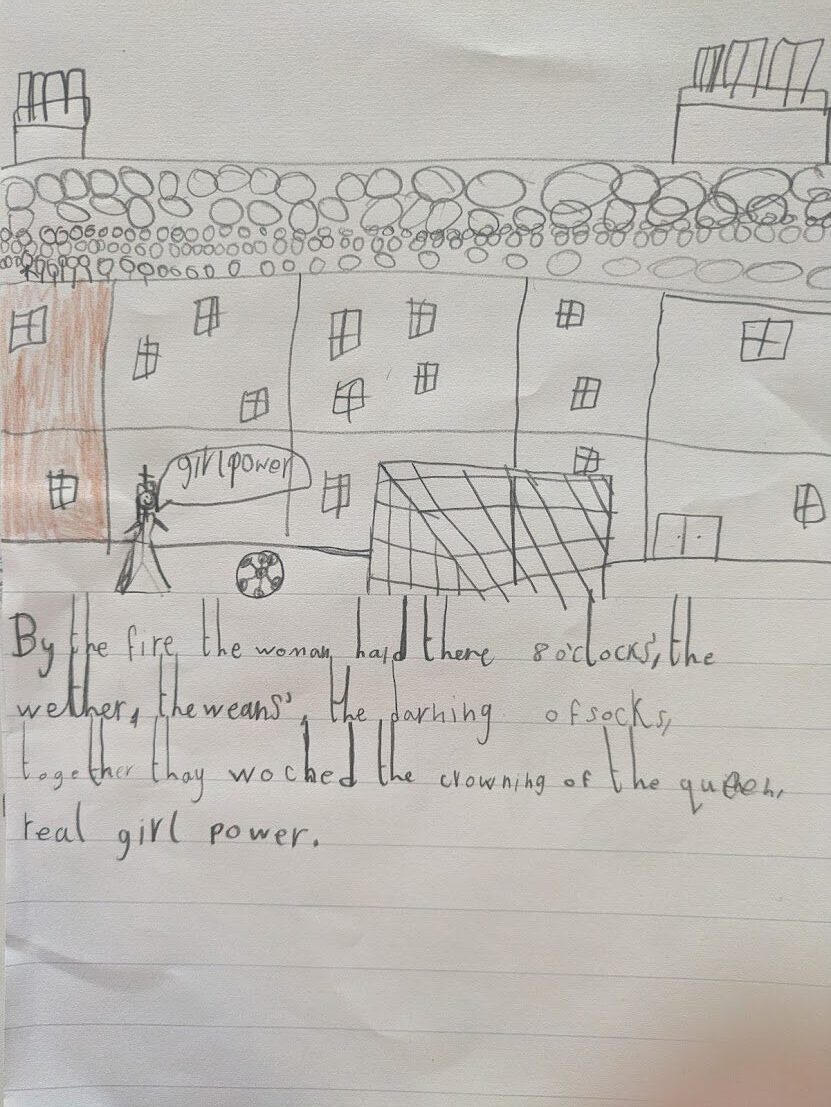 girlpower
By the fire, the woman hajd there 8 o'clocks', the
wether, the weans', the darning of socks,
together thay woched the crowning of the queen,
real girl power.